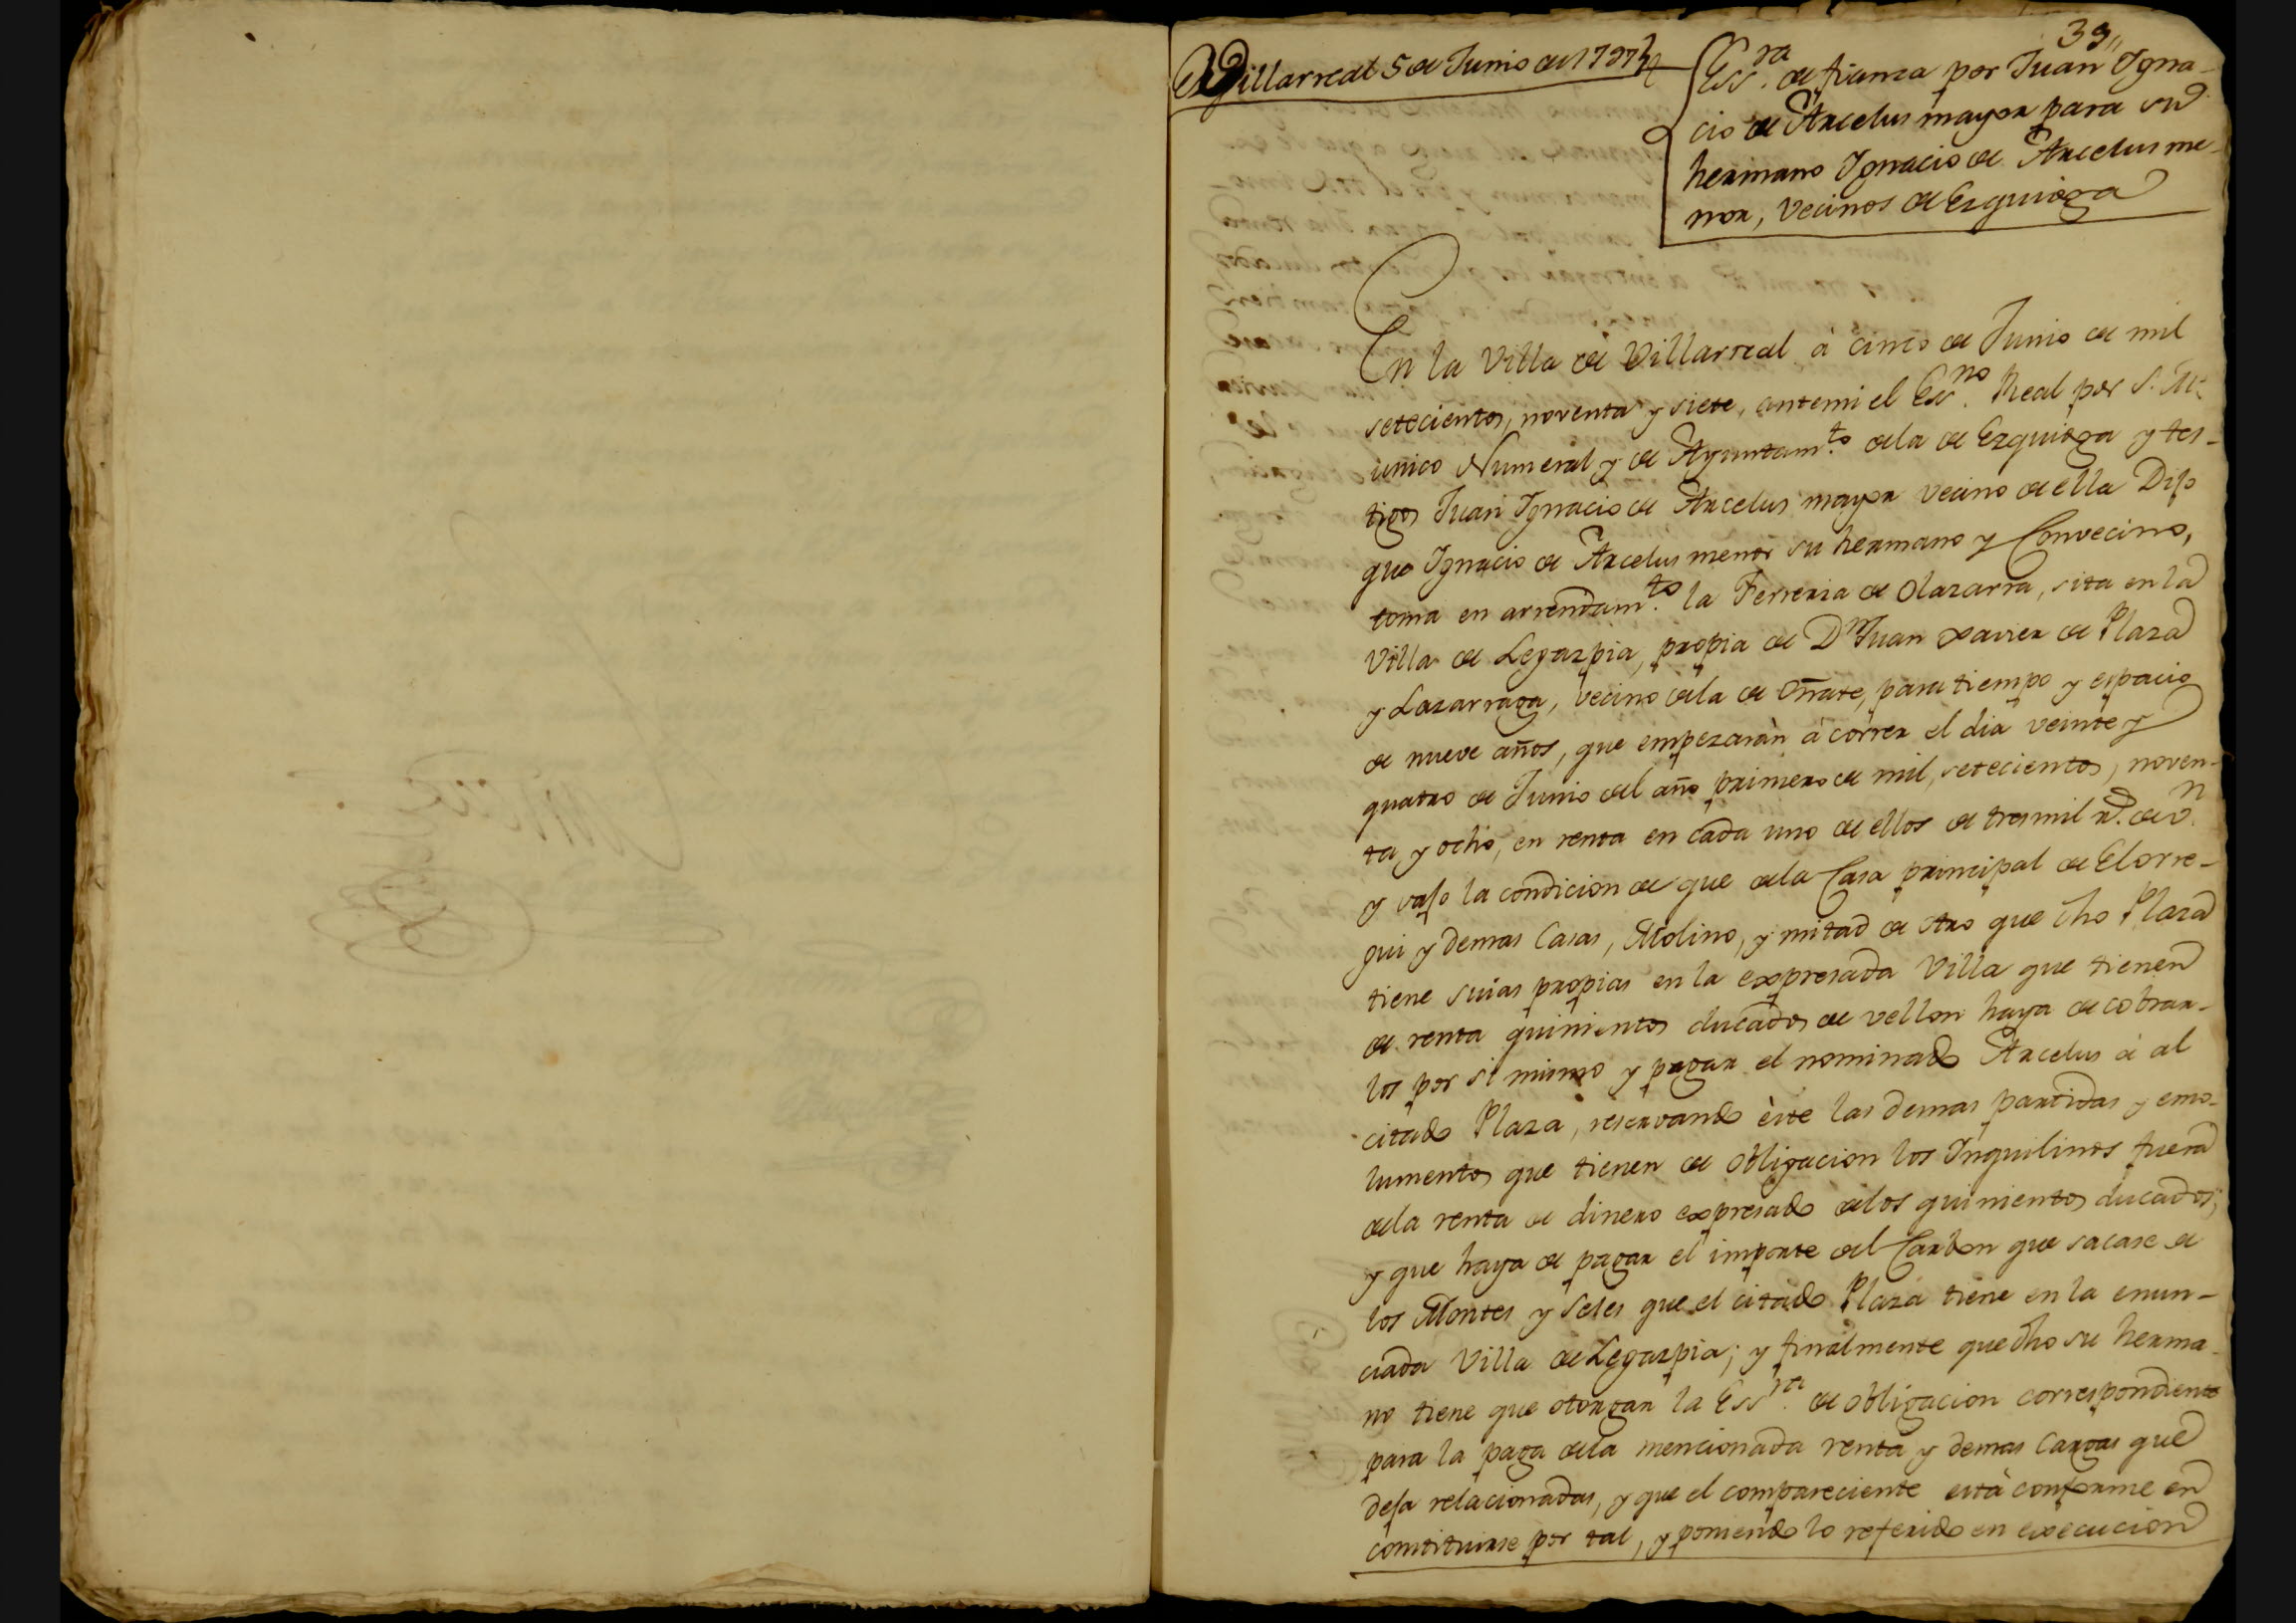 39,,
Villarreal 5 de Junio de 1797
Ess.ra de fianza por Juan Igna-
cio de Arcelus mayor para su
hermano Ignacio de Arcelus me-
nor, vecinos de Ezquioga
En la Villa de Villarreal à cinco de Junio de mil
setecientos, noventa y siete, antemi el Ess.no Real por S. M.
unico Numeral y de Ayuntam.to dela de Ezquioga y tes-
tigos Juan Ignacio de Arcelus mayor vecino de ella Dijo
que Ignacio de Arcelus menor su hermano y Convecino,
toma en arrendam.to la Ferreria de Olazarra, sita en la
Villa de Legazpia, propia de Dn Juan Xavier de Plaza
y Lazarraga, vecino dela de Oñate, para tiempo y espacio
de nueve años, que empezaràn à correr el dia veinte y
quatro de Junio del año primero de mil, setecientos, noven-
ta, y ocho, en renta en cada uno de ellos de tresmil rs. de vn.
y vajo la condicion de que dela Casa principal de Elorre-
gui y demas Casas, Molino, y mitad de otro que dho Plaza
tiene suias propias en la expresada Villa que tienen
de renta quinientos ducados de vellon haya de cobrar-
los por si mismo y pagar el nominado Arcelus à al
citado Plaza, reservando èste las demas partidas y emo-
lumentos que tienen de obligacion los Inquilinos fuera
dela renta de dinero expresado delos quinientos ducados;
y que haya de pagar el importe del Carbon que sacare de
los Montes y Seles que el citado Plaza tiene en la enun-
ciada Villa de Legazpia; y finalmente que dho su herma-
no tiene que otorgar la Ess.ra de obligacion correspondiente
para la paga dela mencionada renta y demas cargas que
deja relacionadas, y que el compareciente està conforme en
constituirse por tal, y poniendo lo referido en execucion